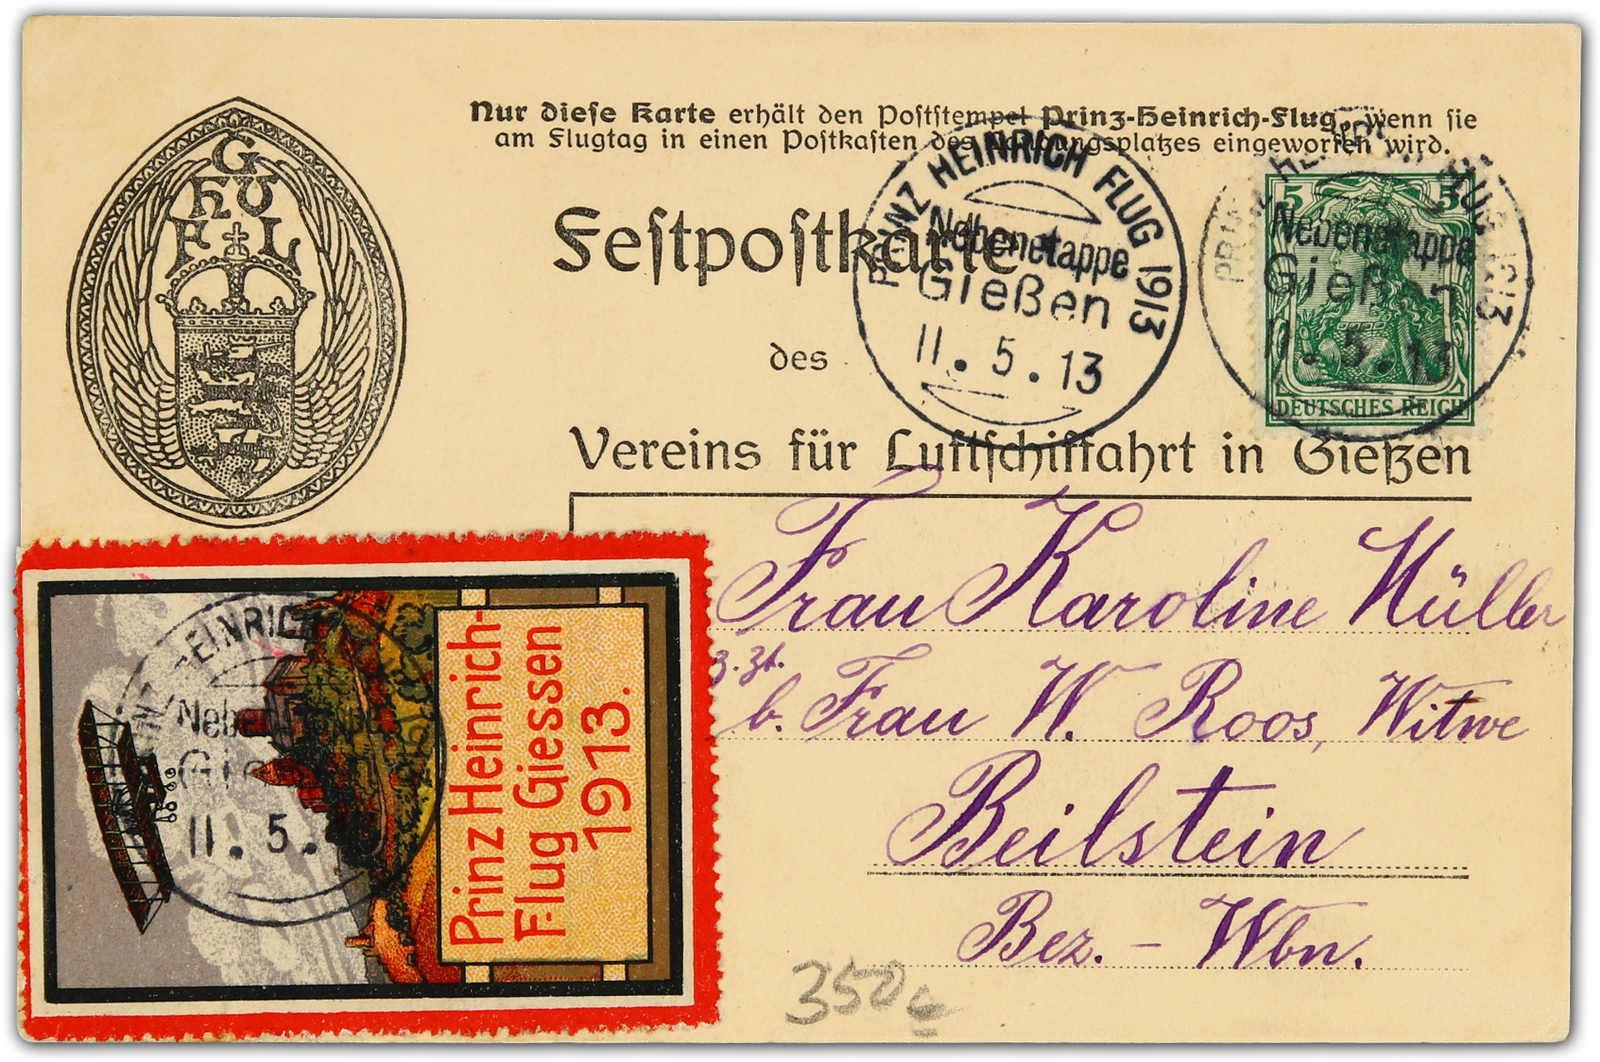 G
H V
F L
Nur diese Karte erhält den Poststempel Prinz-Heinrich-Flug, wenn sie
am Flugtag in einen Postkasten des Landungsplatzes eingeworfen wird.
Festpostkarte
des
Vereins für Luftschiffahrt in Gießen
PRINZ HEINRICH FLUG 1913
Nebenetappe
Gießen
11.5.13
PRINZ HEINRICH FLUG 1913
Nebenetappe
Gießen
11.5.13
5 5
DEUTSCHES REICH
Frau Karoline Müller
z. Zt.
b. Frau W. Roos, Witwe
Beilstein
Bez. - Wbn.
Prinz Heinrich-
Flug Giessen
1913.
PRINZ HEINRICH
Nebenetappe
Gießen
11.5.13
350